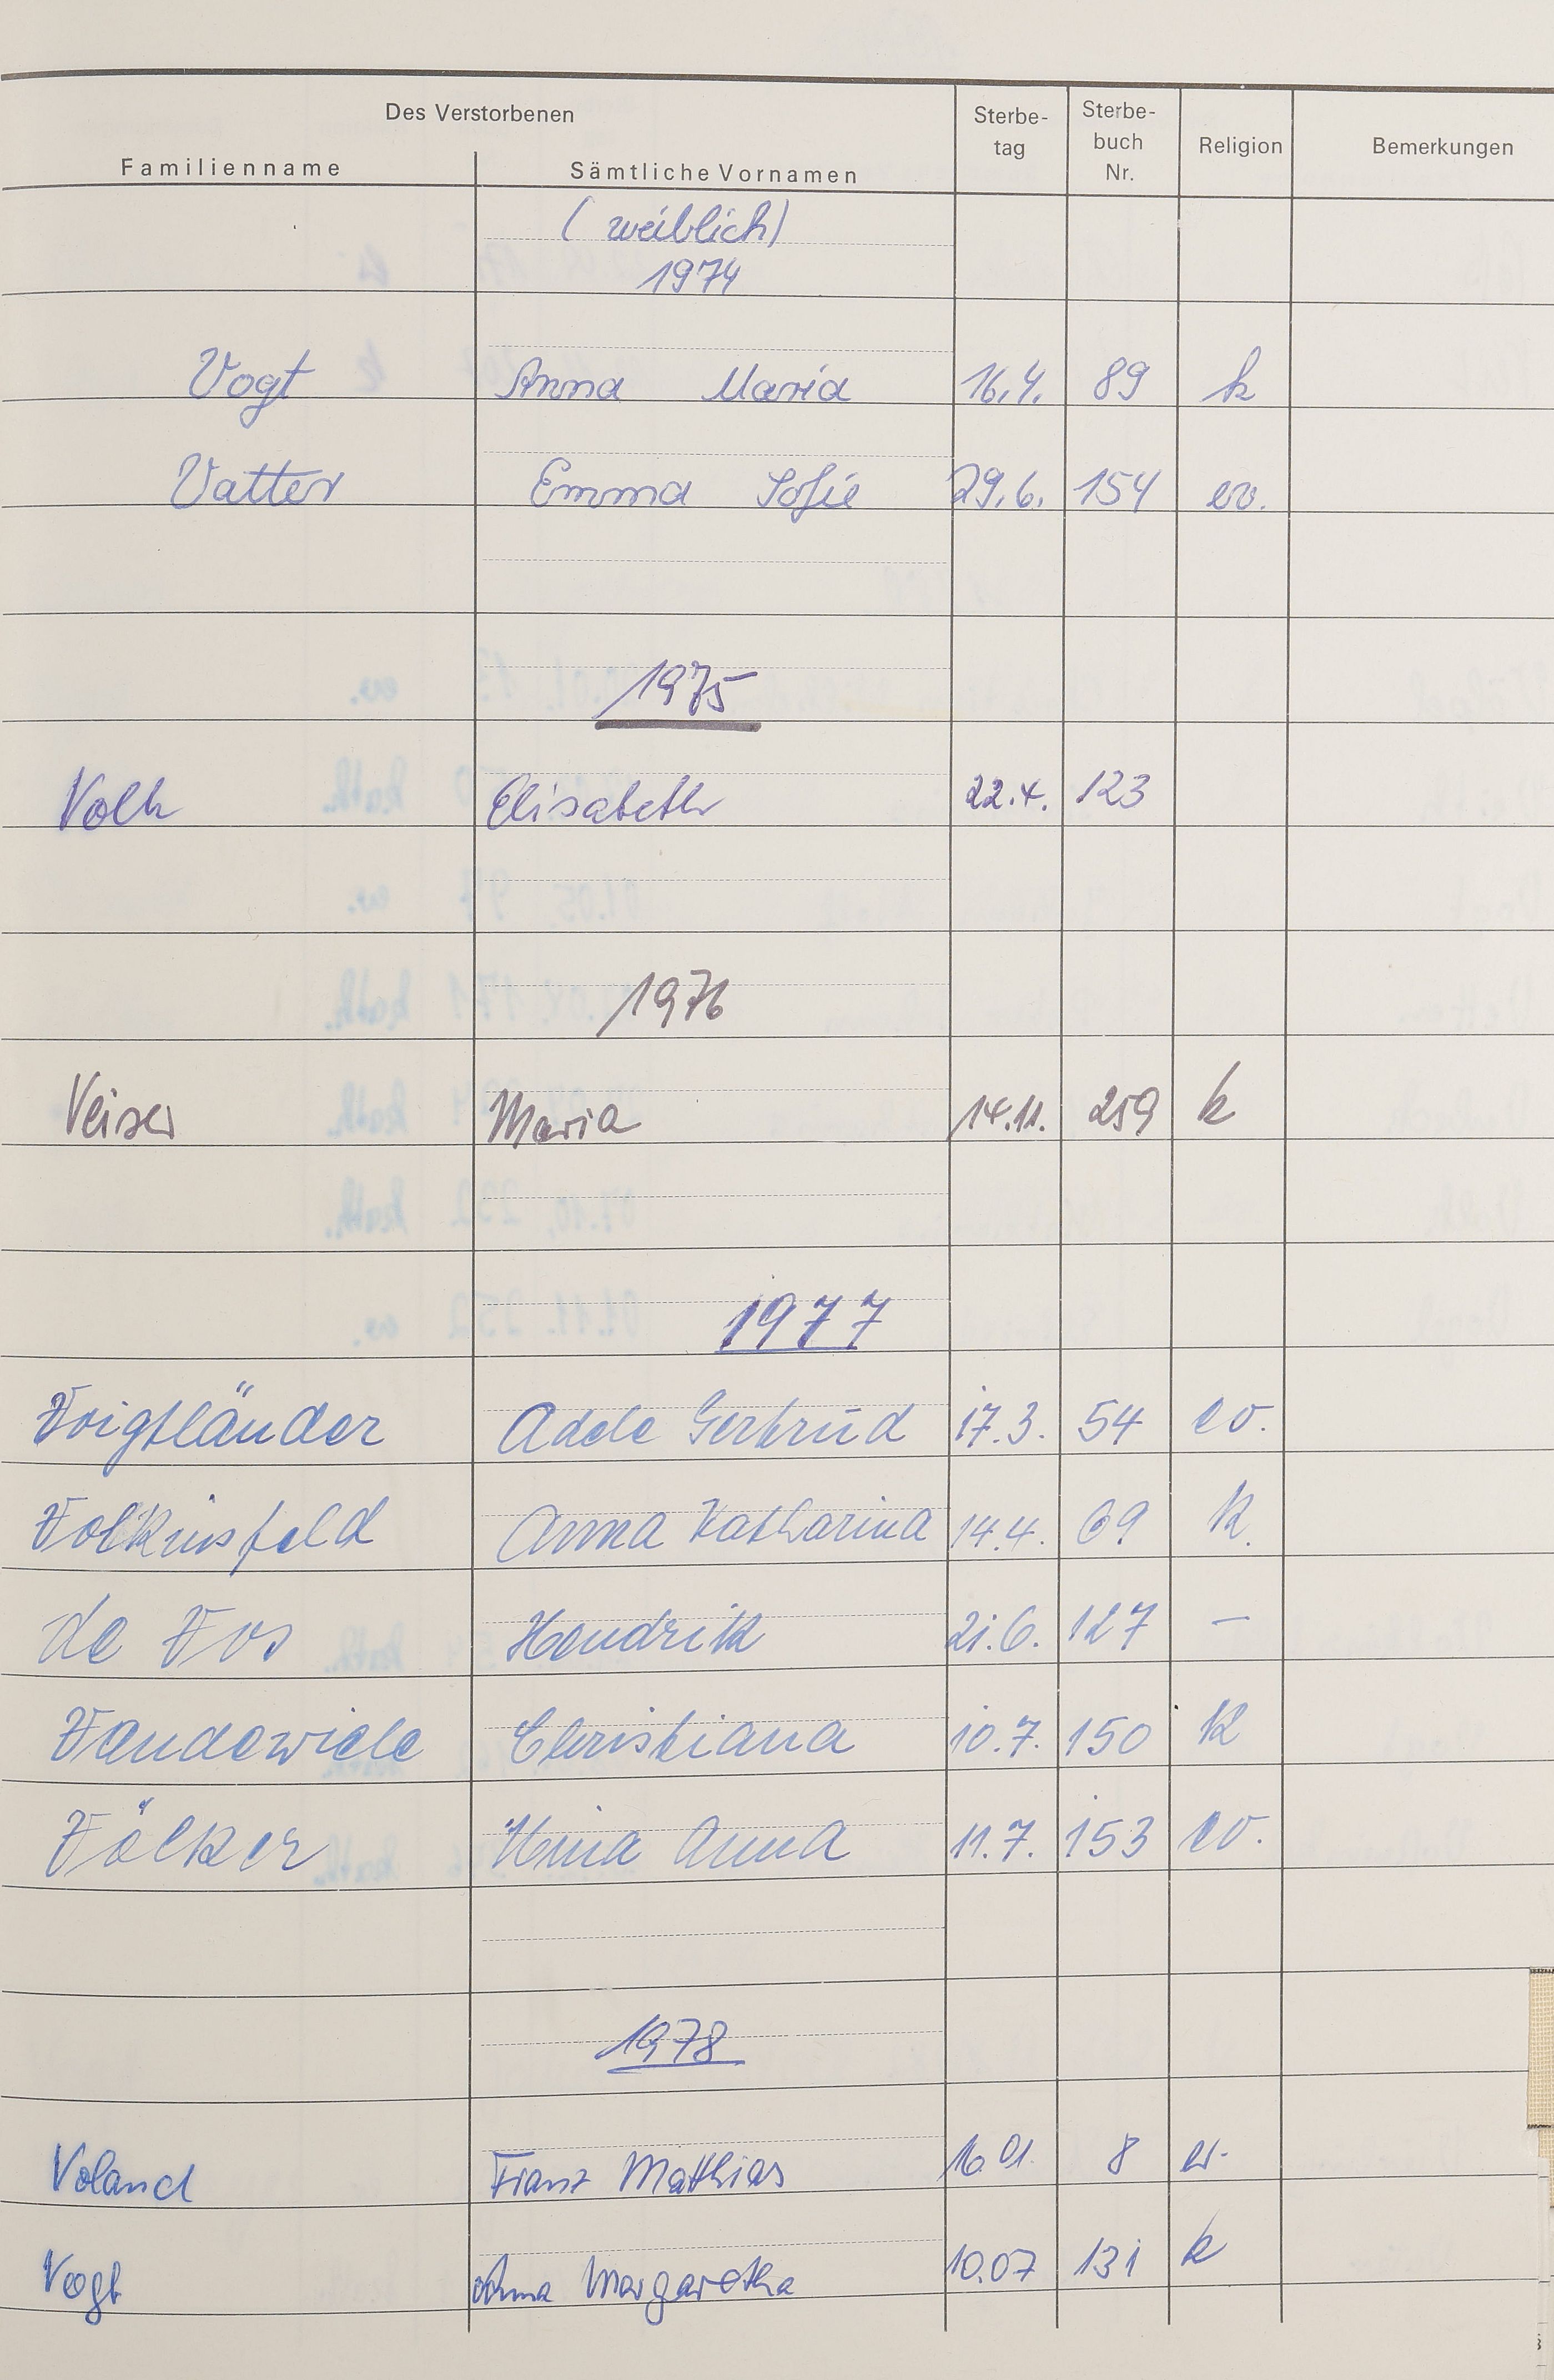 Des Verstorbenen
Familienname Sämtliche Vornamen Sterbe- tag Sterbe- buch Nr. Religion Bemerkungen
(weiblich)
1974
Vogt Anna Maria 16.4. 89 k
Vatter Emma Sofie 29.6. 154 ev.
1975
Volk Elisabeth 22.4. 123
1976
Veiser Maria 14.11. 259 k
1977
Voigtländer Adele Gertrud 17.3. 54 ev.
Volkinsfeld Anna Katharina 14.4. 69 k.
de Vos Hendrik 21.6. 127 –
Vandewiele Christiana 10.7. 150 k
Völker Anna 11.7. 153 ev.
1978
Voland Franz Matthias 16.01. 8 ev.
Vogt Anna Margaretha 10.07 131 k